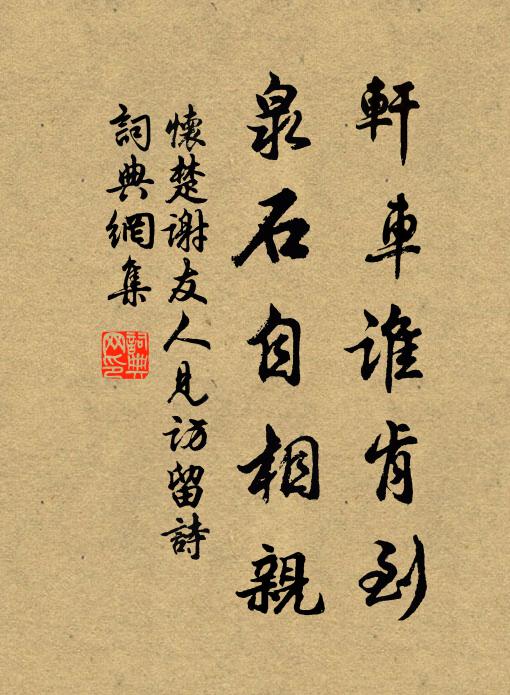 軒車誰肯到
泉石自相親
懷楚謝友人見訪留詩
詞典網集
詞典网印